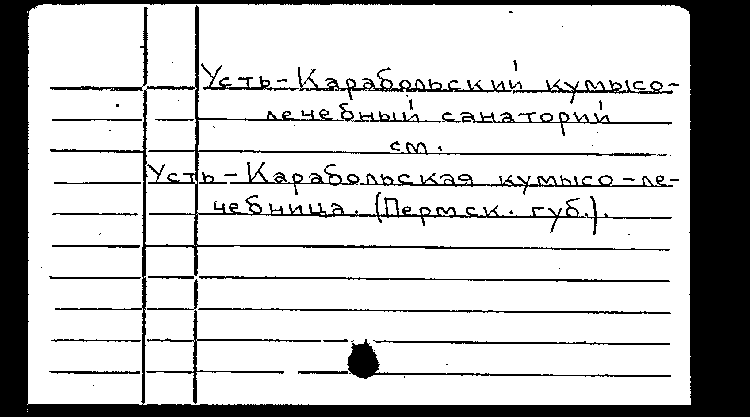 Усть-Карабольский кумысо-
лечебный санаторий
см.
Усть-Карабольская кумысо-ле-
чебница. (Пермск. губ.).